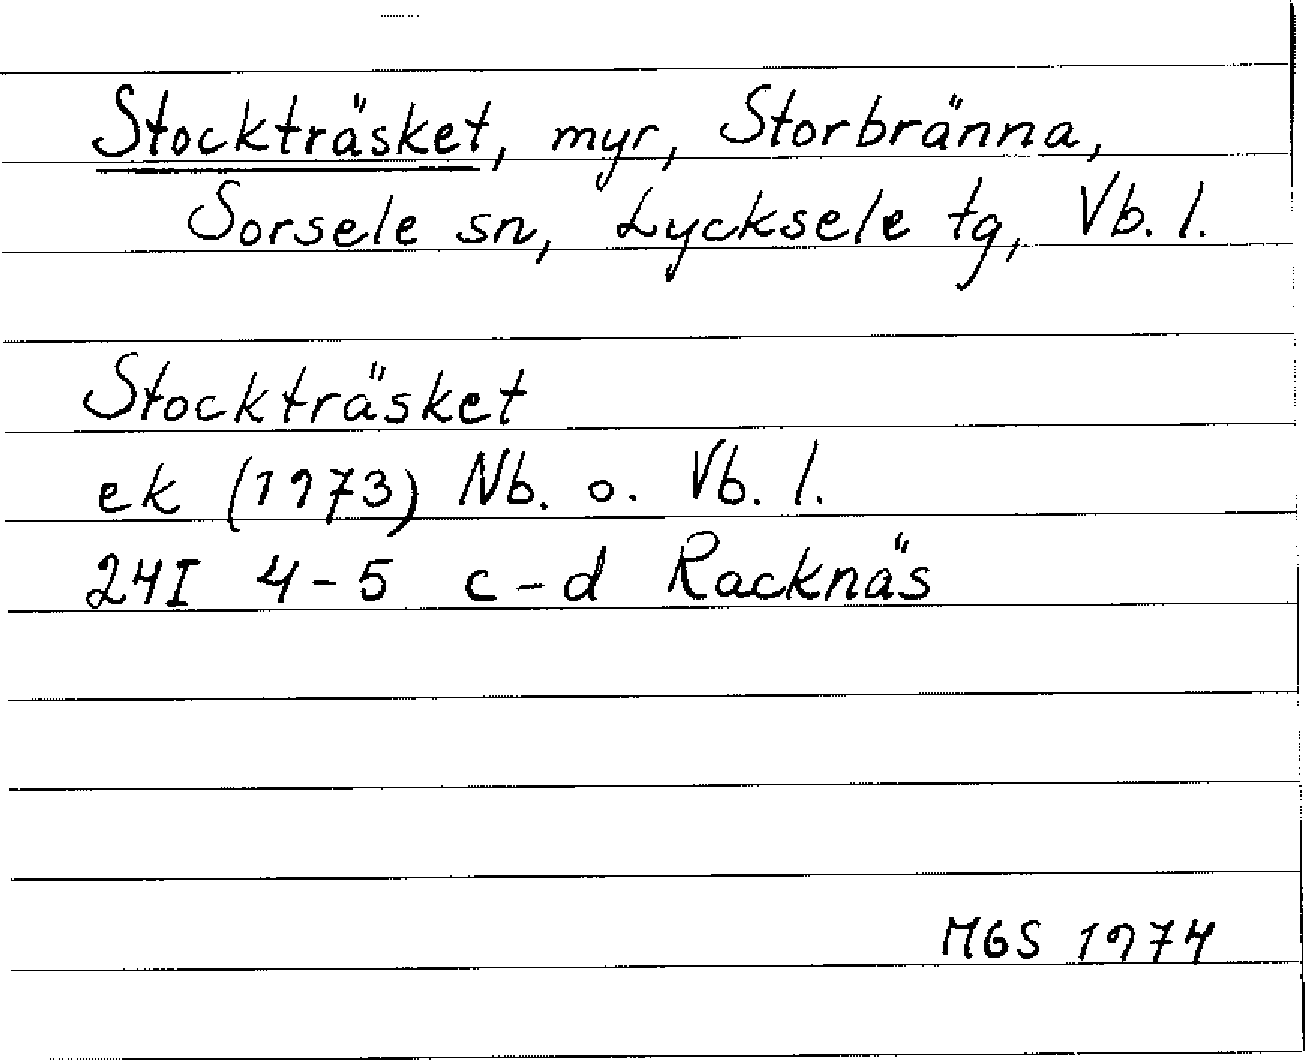 Stockträsket, myr, Storbränna,
Sorsele sn, Lycksele tg, Vb. l.
Stockträsket
ek (1973) Nb. o. Vb. l.
24I 4-5 c-d Racknäs
MGS 1974